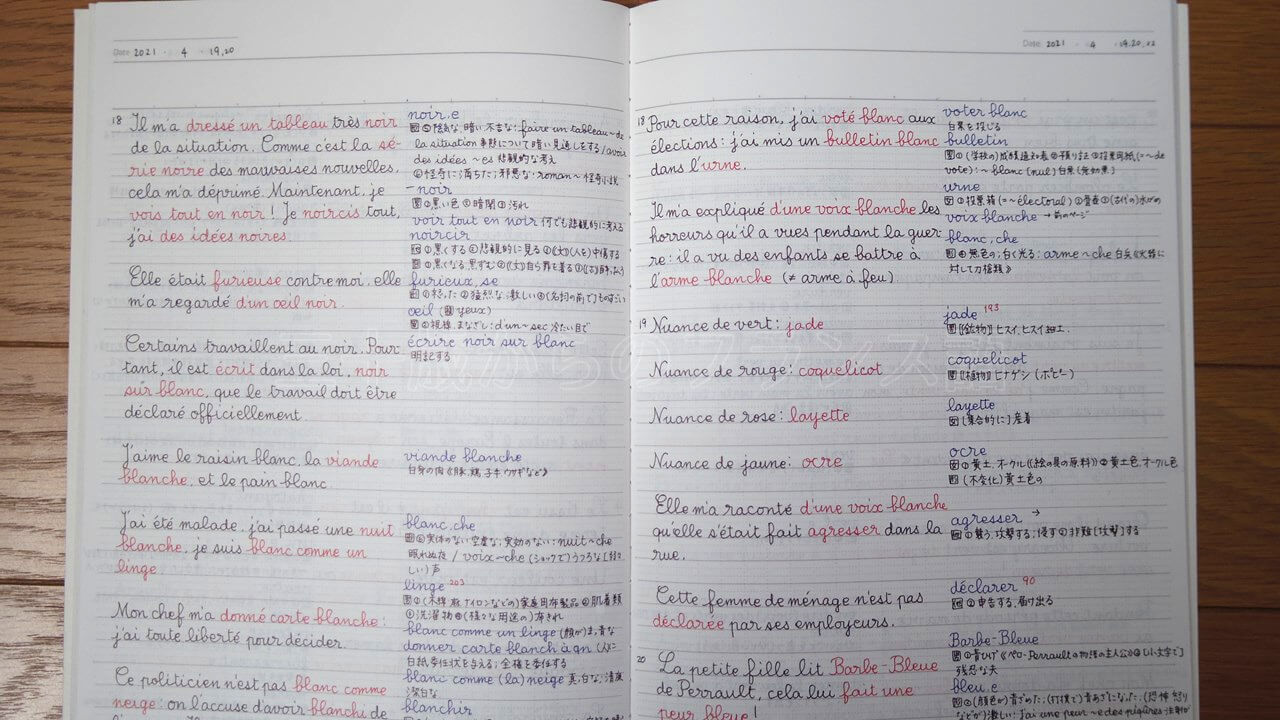 Date 2021 · 4 · 19,20
18 Il m'a dressé un tableau très noir
de la situation. Comme c'est la sé-
rie noire des mauvaises nouvelles,
cela m'a déprimé. Maintenant, je
vois tout en noir ! Je noircis tout,
j'ai des idées noires.
Elle était furieuse contre moi, elle
m'a regardé d'un œil noir.
Certains travaillent au noir. Pour
tant, il est écrit dans la loi, noir
sur blanc, que le travail doit être
déclaré officiellement.
J'aime le raisin blanc, la viande
blanche, et le pain blanc.
J'ai été malade, j'ai passé une nuit
blanche, je suis blanc comme un
linge.
Mon chef m'a donné carte blanche :
j'ai toute liberté pour décider.
Ce politicien n'est pas blanc comme
neige : on l'accuse d'avoir blanchi de
noir,e
陰気な, 暗い, 不吉な : faire un tableau ~ de
la situation 事態について暗い見通しをする / avoir
des idées ~es 悲観的な考え
怪奇に満ちた; 邪悪な : roman ~ 怪奇小説
– noir
①黒い色 ②暗闇 ③汚れ
voir tout en noir 何でも悲観的に考える
noircir
①黒くする ②悲観的に見る
furieux,se
œil (yeux)
視線, まなざし : d'un ~ sec 冷たい目で
écrire noir sur blanc
明記する
viande blanche
白身の肉《豚, 鶏, 子牛, ウサギなど》
blanc,che
実体のない, 空虚な; 実効のない : nuit ~che
眠れぬ夜 / voix ~che (ショックで)うつろな[弱々
しい]声
linge 203
①(木綿, 麻, ナイロンなどの)家庭用布製品 ②肌着類
③洗濯物 ④(様々な用途の)布きれ
blanc comme un linge (顔が)まっ青な
donner carte blanch à qn (人)に
白紙委任状を与える; 全権を委任する
blanc comme (la) neige 真っ白な, 清廉
潔白な
blanchir
Date 2021 · 4 · 19,20,22
18 Pour cette raison, j'ai voté blanc aux
élections : j'ai mis un bulletin blanc
dans l'urne.
Il m'a expliqué d'une voix blanche les
horreurs qu'il a vues pendant la guer
re : il a vu des enfants se battre à
l'arme blanche (≠ arme à feu).
19 Nuance de vert : jade
Nuance de rouge : coquelicot
Nuance de rose : layette
Nuance de jaune : ocre
Elle m'a raconté d'une voix blanche
qu'elle s'était fait agresser dans la
rue.
Cette femme de ménage n'est pas
déclarée par ses employeurs.
20 La petite fille lit Barbe-Bleue
de Perrault, cela lui fait une
peur bleue !
voter blanc
白票を投じる
bulletin
①(学校の)成績通知表 ②預り証 ③投票用紙 (= ~ de
vote) : ~ blanc [nul] 白票[無効票]
urne
①投票箱 (= ~ électoral) ②骨壷 ③(古代の)水がめ
voix blanche → 前のページ
blanc,che
無色の; 白く光る : arme ~che 白兵《火器に
対して刀槍類》
jade 193
《鉱物》ヒスイ, ヒスイ細工.
coquelicot
《植物》ヒナゲシ (ポピー)
layette
[集合的に]産着
ocre
①黄土, オークル《絵の具の原料》 ②黄土色, オークル色
(不変化)黄土色の
agresser →
①襲う, 攻撃する; 侵す ②非難[攻撃]する
déclarer 90
申告する, 届け出る
Barbe-Bleue
①青ひげ《ペロー Perrault の物語の主人公》 ②[小文字で]
残忍な夫
bleu,e